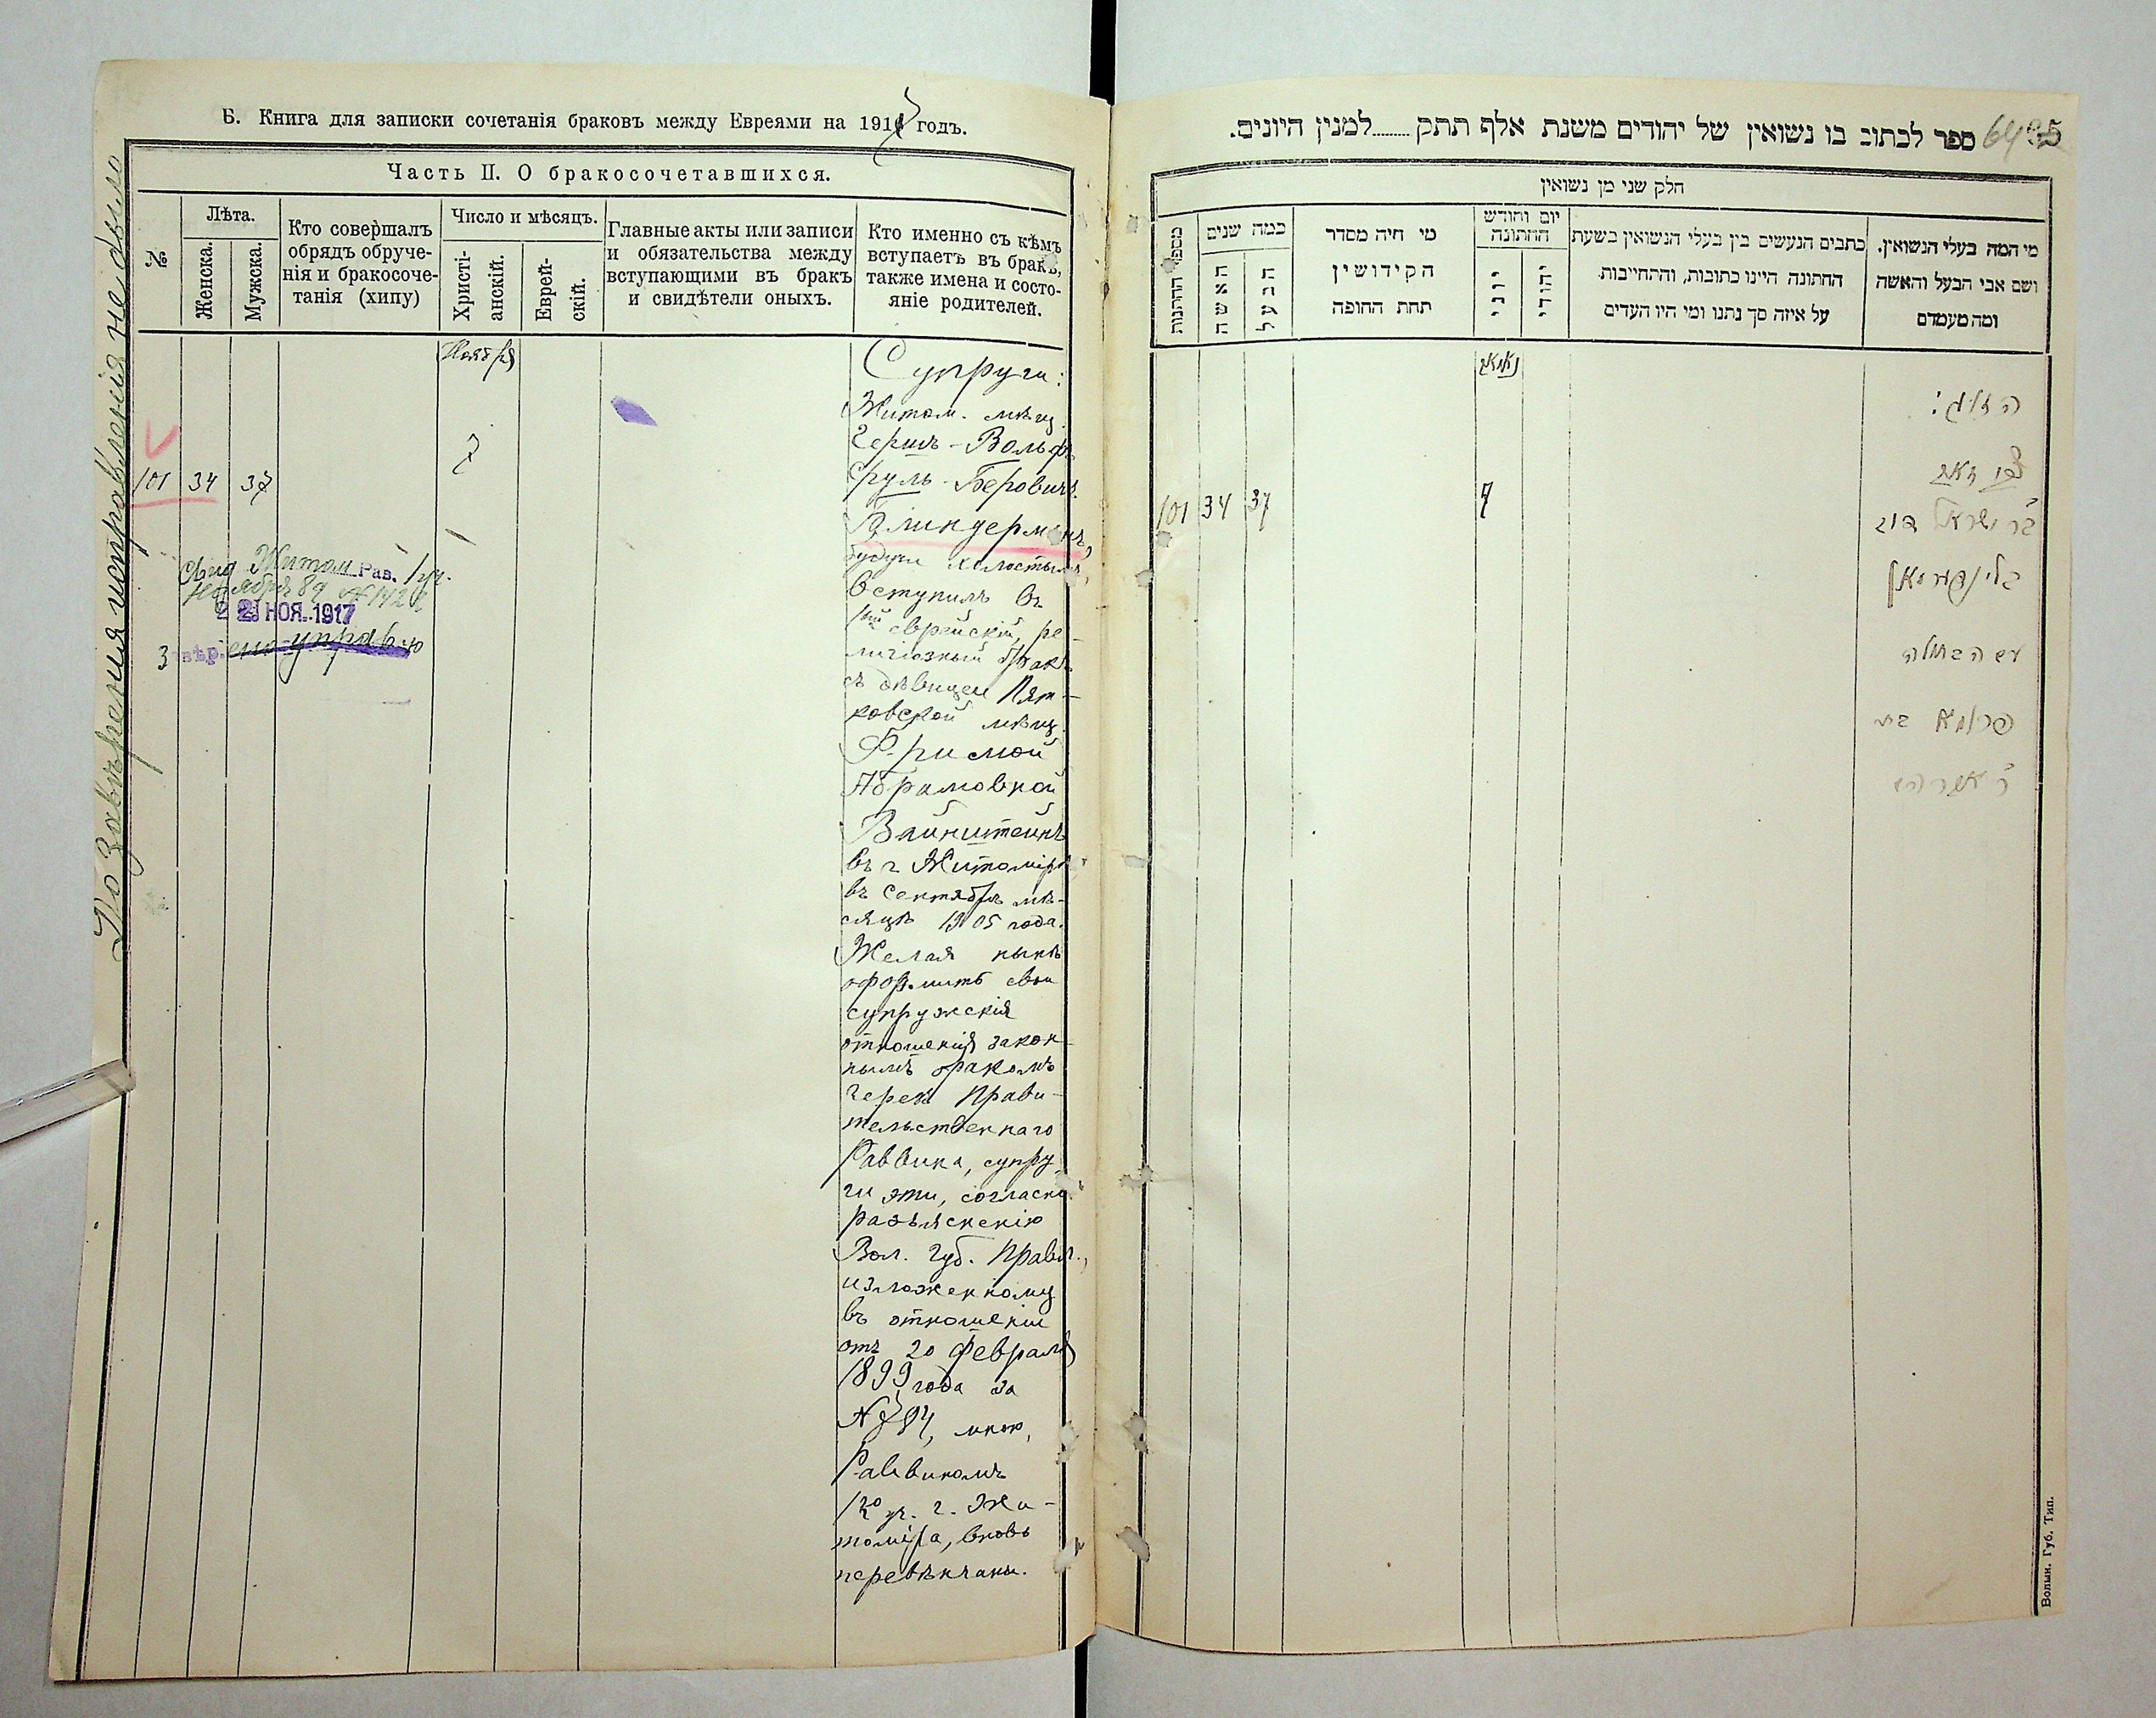 Б. Книга для записки сочетанія браковъ между Евреями на 1917 годъ.
Часть II. О бракосочетавшихся.
№
Лѣта.
Женска.
Мужска.
Кто совершалъ
обрядъ обруче-
нія и бракосоче-
танія (хипу)
Число и мѣсяцъ.
Христі-
анскій.
Еврей-
скій.
Главные акты или записи
и обязательства между
вступающими въ бракъ
и свидѣтели оныхъ.
Кто именно съ кѣмъ
вступаетъ въ бракъ,
также имена и состо-
яніе родителей.
Ноября
101 34 37
7
Супруги:
Житом. мѣщ.
Гершъ-Вольфъ
Сруль-Беровичъ
Блиндерманъ,
будучи холостымъ,
вступилъ въ
1ый еврейскій, ре-
лигіозный бракъ
съ дѣвицей Пят-
ковской мѣщ.
Фримой
Абрамовной
Вайнштейнъ
въ г. Житомірѣ
въ Сентябрѣ мѣ-
сяцѣ 1905 года.
Желая нынѣ
оформить свои
супружскія
отношенія закон-
нымъ бракомъ
черезъ Прави-
тельственнаго
Раввина, супру-
ги эти, согласно
разъясненію
Вол. Губ. Правл.,
изложенному
въ отношеніи
отъ 20 Февраля
1899 года за
№ 784, мною,
Раввиномъ
1го уч. г. Жи-
томіра, вновь
перевѣнчаны.
Житом. Рав. 1 уч.
Ноября 89
2 НОЯ. 1917
До завѣренія исправленія не было
64 35
ספר לכתוב בו נשואין של יהודים משנת אלף תתק........למנין היונים.
חלק שני מן נשואין
מספר החתונות
כמה שנים
האשה
הבעל
מי היה מסדר
הקידושין
תחת החופה
יום וחודש
החתונה
יוני
יהודי
כתבים הנעשים בין בעלי הנשואין בשעת
החתונה היינו כתובות, והתחייבות
על איזה סך נתנו ומי היו העדים
מי המה בעלי הנשואין.
ושם אבי הבעל והאשה
ומה מעמדם
101 34 37
7
הזוג:
צבי זאב
בר ישראל דוב
בלינדערמאן
עם הבתולה
פרומא בת
Волын. Губ. Тип.